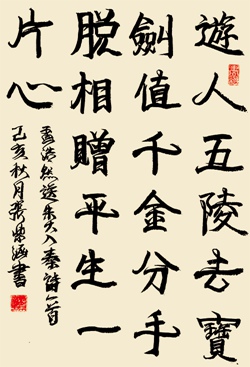 遊人五陵去寶
劍值千金分手
脫相贈平生一
片心
孟浩然送朱大入秦詩一首
己亥秋月書